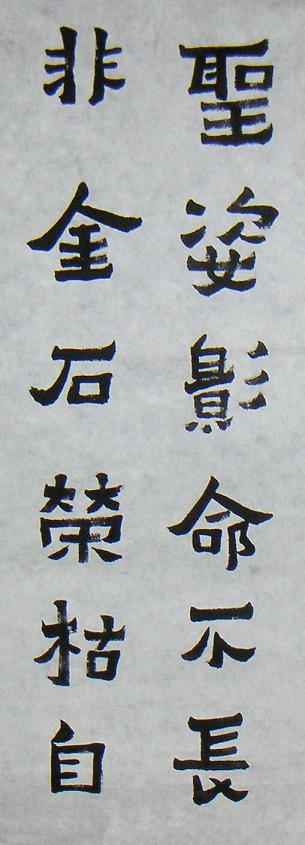 聖姿影命不長
非金石榮枯自